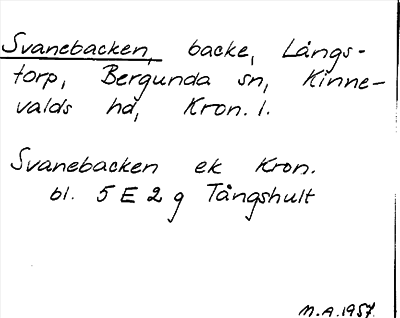 Svanebacken, backe, Långs-
torp, Bergunda sn, Kinne-
valds hd, Kron. l.
Svanebacken ek Kron.
bl. 5 E 2 g Tångshult
N.A. 1957.